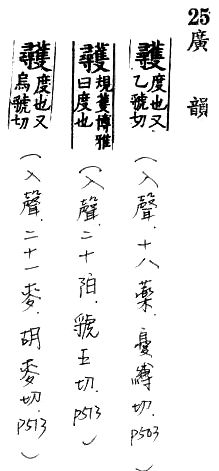 25
廣韻
彠度也又乙虢切(入聲.十八藥.憂縛切.P503)
彠規蒦博雅曰度也(入聲.二十陌.虢五切.P513)
彠度也又烏虢切(入聲.二十一麥.胡麥切.P513)